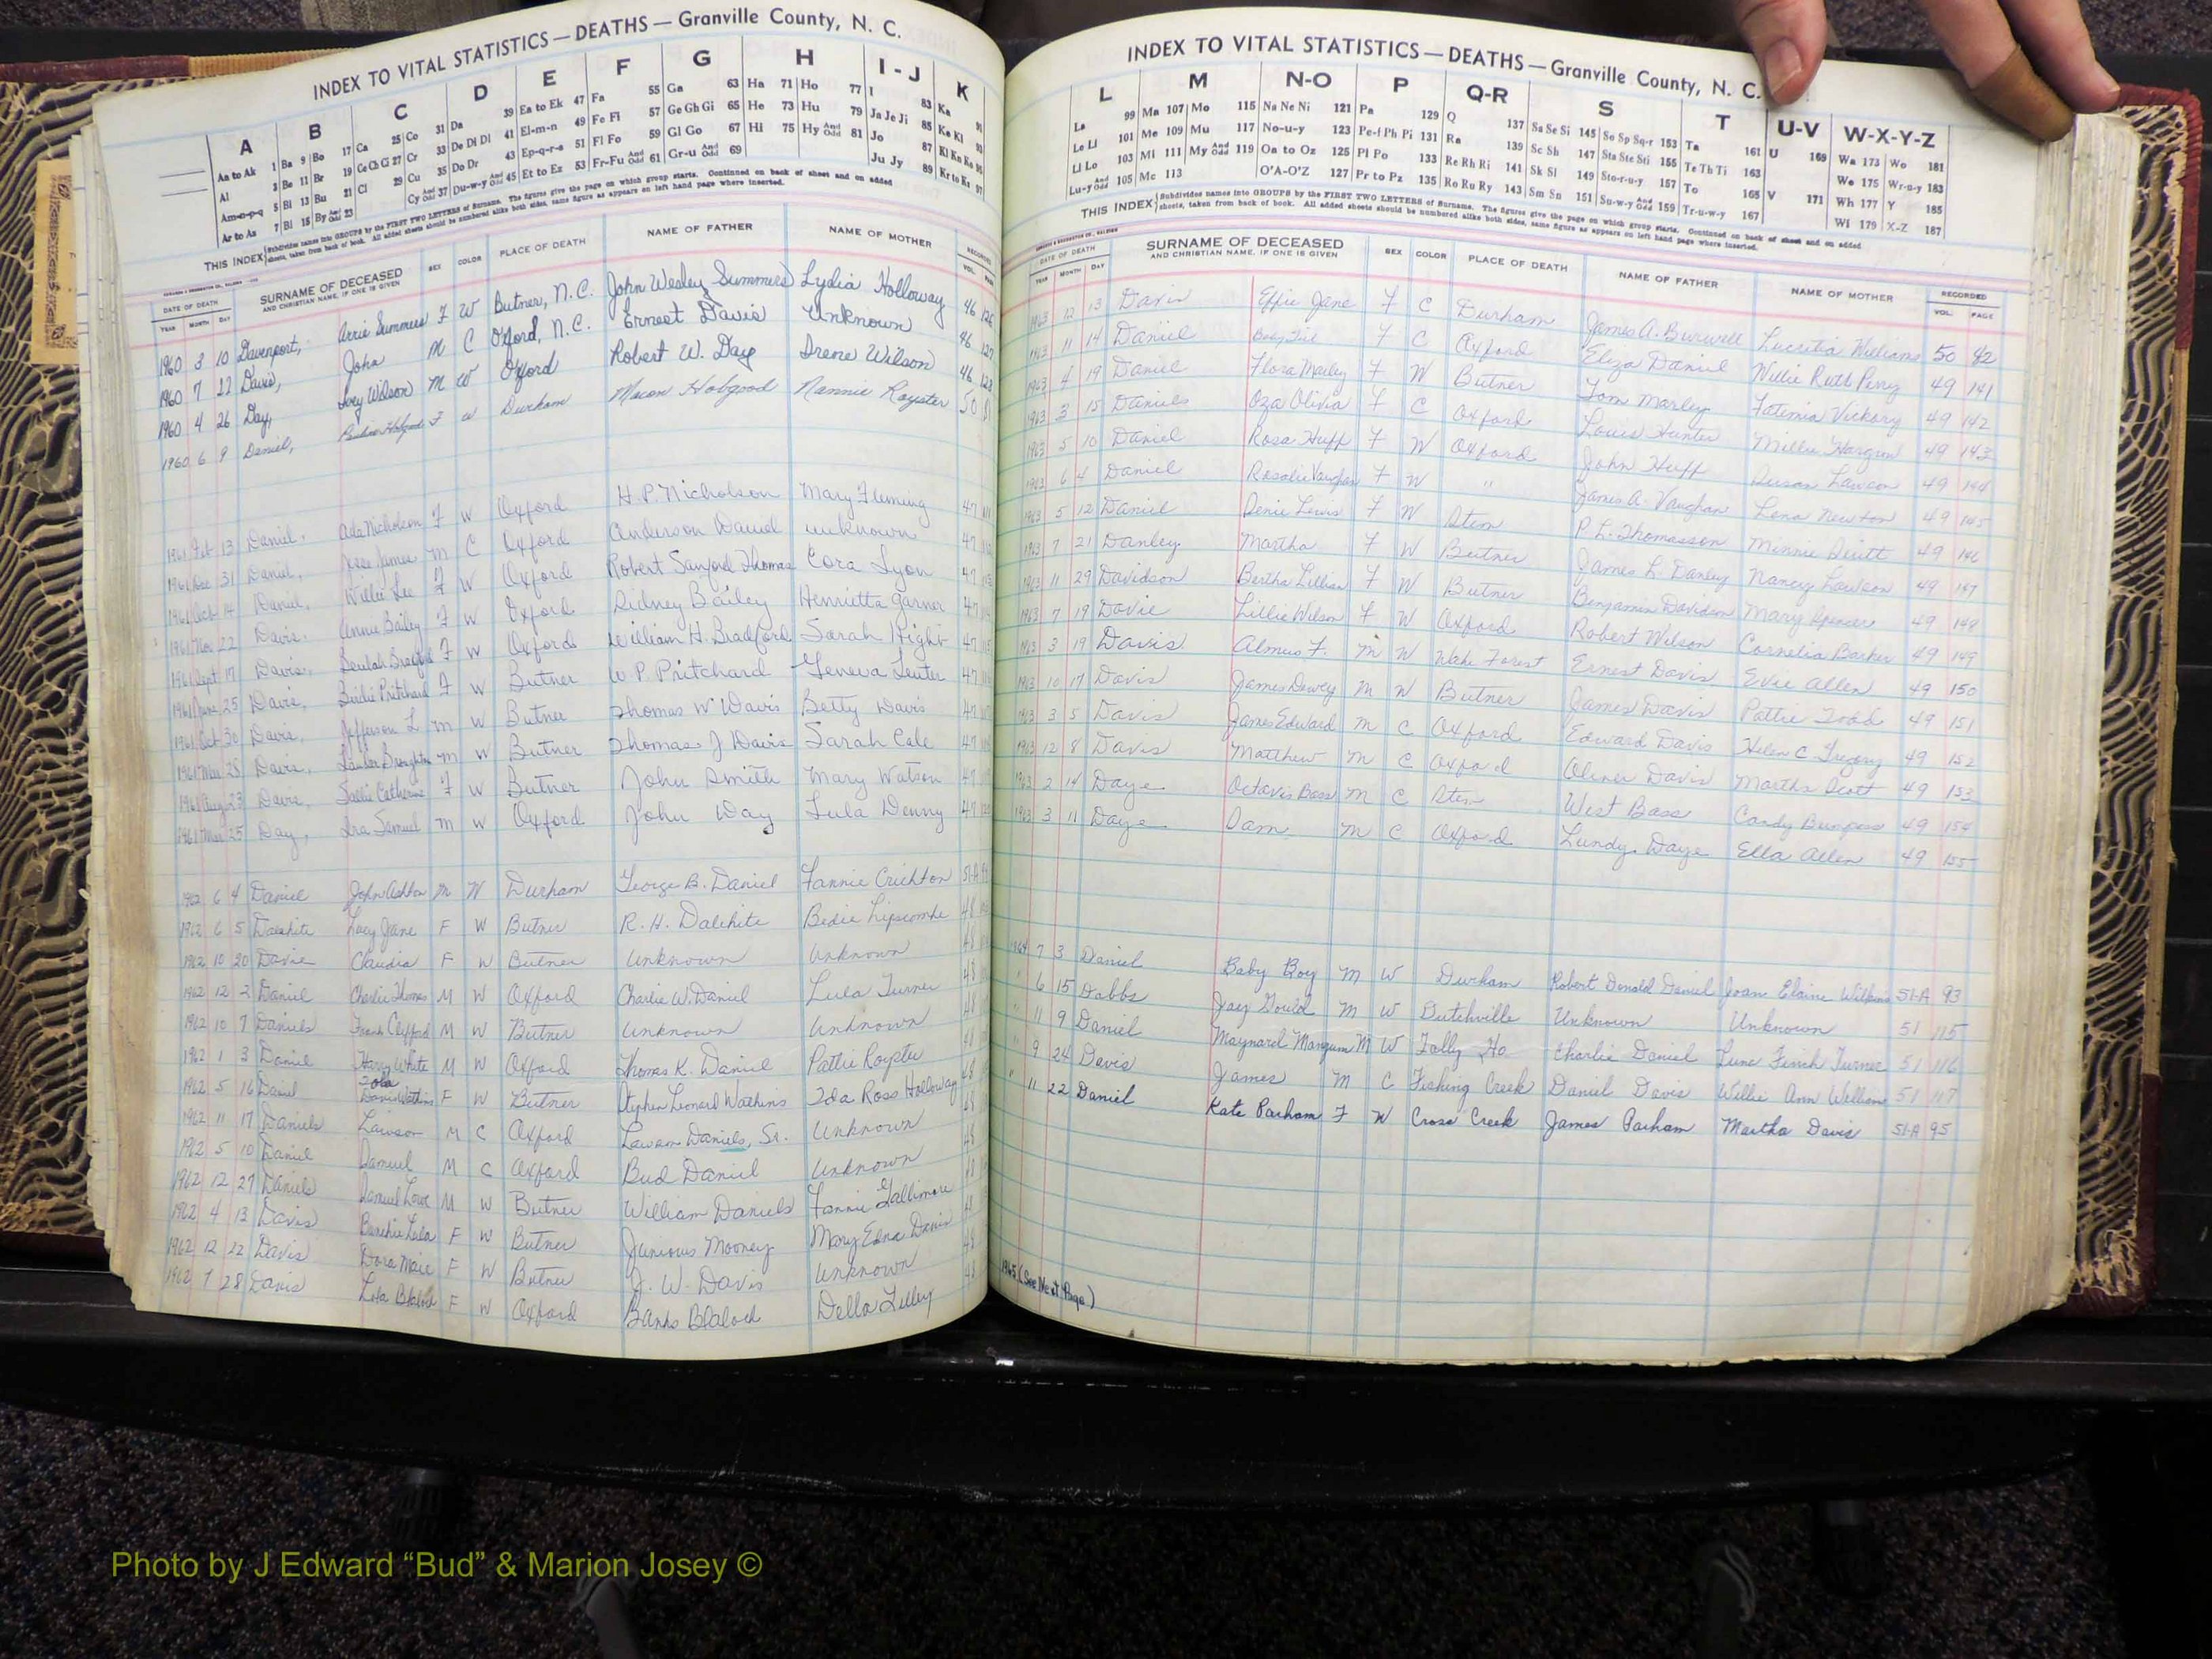 INDEX TO VITAL STATISTICS — DEATHS — Granville County, N. C.
A B C D E F G H I - J K
Aa to Ak 1 Ba 9 Bo 17 Ca 25 Co 31 Da 39 Ea to Ek 47 Fa 55 Ga 63 Ha 71 Ho 77 I 83 Ka 91
Al 3 Be 11 Br 19 Ce Ch Ci 27 Cr 33 De Di Dl 41 El-m-n 49 Fe Fi 57 Ge Gh Gi 65 He 73 Hu 79 Ja Je Ji 85 Ke Kl 93
Am-n-p-q 5 Bi 13 Bu 21 Cl 29 Cu 35 Do Dr 43 Ep-q-r-s 51 Fl Fo 59 Gl Go 67 Hi 75 Hy And Odd 81 Jo 87 Kl Kn Ko 95
Ar to Az 7 Bl 15 By And Odd 23 Cy And Odd 37 Du-w-y And Odd 45 Et to Ez 53 Fr-Fu And Odd 61 Gr-u And Odd 69 Ju Jy 89 Kr to Kz 97
THIS INDEX Subdivides names into GROUPS by the FIRST TWO LETTERS of Surname. The figures give the page on which group starts. Continued on back of sheet and on added
sheets, taken from back of book. All added sheets should be numbered alike both sides, same figure as appears on left hand page where inserted.
DATE OF DEATH SURNAME OF DECEASED SEX COLOR PLACE OF DEATH NAME OF FATHER NAME OF MOTHER RECORDED
YEAR MONTH DAY AND CHRISTIAN NAME, IF ONE IS GIVEN VOL.
1960 3 10 Davenport, Arrie Summers F W Butner, N.C. John Wesley Summers Lydia Holloway 46 126
1960 7 22 Davis, John M C Oxford, N.C. Ernest Davis Unknown 46 127
1960 4 26 Day, Ivey Wilson M W Oxford Robert W. Day Irene Wilson 46 128
1960 6 9 Daniel, F W Durham Macon Hobgood Nannie Royster 50
1961 Feb 13 Daniel, Ada Nicholson F W Oxford H. P. Nicholson Mary Fleming 47
1961 Dec 31 Daniel, James M C Oxford Anderson Daniel unknown 47
1961 Oct 14 Daniel, Willie Lee F W Oxford Robert Sanford Thomas Cora Lyon 47
1961 Nov 22 Davis, Annie Bailey F W Oxford Sidney Bailey Henrietta Garner 47
1961 Sept 17 Davis, Beulah Bradford F W Oxford William H. Bradford Sarah Hight 47
1961 June 25 Davis, Birdie Pritchard F W Butner W P Pritchard Geneva 47
1961 Oct 30 Davis, Jefferson L M W Butner Thomas W Davis Betty Davis 47
1961 25 Davis, Broughton M W Butner Thomas J Davis Sarah Cale 47
1961 Aug 23 Davis, Sallie Catherine F W Butner John Smith Mary Watson 47
1961 Mar 25 Day, Ira Samuel M W Oxford John Day Lula Denny 47
1962 6 4 Daniel John Ashton M W Durham George B. Daniel Fannie Crichton 51-A
1962 6 5 Dalehite Lucy Jane F W Butner R. H. Dalehite Bedie Lipscombe 48
1962 10 20 Davie Claudia F W Butner Unknown Unknown 48
1962 12 2 Daniel Charlie Thomas M W Oxford Charlie W. Daniel Lula Turner 48
1962 10 7 Daniels Frank Clifford M W Butner Unknown Unknown 48
1962 1 3 Daniel Harry White M W Oxford Thomas K. Daniel Pattie Royster 48
1962 5 16 Daniel Zola Watkins F W Butner Stephen Leonard Watkins Ida Ross Holloway 48
1962 11 17 Daniels Lawson M C Oxford Lawson Daniels, Sr. Unknown 48
1962 5 10 Daniel Samuel M C Oxford Bud Daniel Unknown 48
1962 12 27 Daniels Samuel Lowe M W Butner William Daniels Fannie Gallimore 48
1962 4 13 Davis Lula F W Butner Junious Mooney Mary Edna Davis 48
1962 12 22 Davis Dora Maie F W Butner J. W. Davis Unknown 48
1962 7 28 Davis Lola Blalock F W Oxford Banks Blalock Della Lilley
INDEX TO VITAL STATISTICS — DEATHS — Granville County, N. C.
L M N-O P Q-R S T U-V W-X-Y-Z
La 99 Ma 107 Mo 115 Na Ne Ni 121 Pa 129 Q 137 Sa Se Si 145 So Sp Sq-r 153 Ta 161 U 169 Wa 173 Wo 181
Le Ll 101 Me 109 Mu 117 No-u-y 123 Pe-f Ph Pi 131 Ra 139 Sc Sh 147 Sta Ste Sti 155 Te Th Ti 163 We 175 Wr-u-y 183
Li Lo 103 Mi 111 My And Odd 119 Oa to Oz 125 Pl Po 133 Re Rh Ri 141 Sk Sl 149 Sto-r-u-y 157 To 165 V 171 Wh 177 Y 185
Lu-y And Odd 105 Mc 113 O'A-O'Z 127 Pr to Pz 135 Ro Ru Ry 143 Sm Sn 151 Su-w-y And Odd 159 Tr-u-w-y 167 Wi 179 X-Z 187
THIS INDEX Subdivides names into GROUPS by the FIRST TWO LETTERS of Surname. The figures give the page on which group starts. Continued on back of sheet and on added
sheets, taken from back of book. All added sheets should be numbered alike both sides, same figure as appears on left hand page where inserted.
DATE OF DEATH SURNAME OF DECEASED SEX COLOR PLACE OF DEATH NAME OF FATHER NAME OF MOTHER RECORDED
YEAR MONTH DAY AND CHRISTIAN NAME, IF ONE IS GIVEN VOL. PAGE
1963 12 13 Davis Effie Jane F C Durham James A. Burwell Lucretia Williams 50 42
1963 11 14 Daniel Baby Girl F C Oxford Eliza Daniel Willie Ruth Perry 49 141
1963 4 19 Daniel Flora Marley F W Butner Tom Marley Fatimia Vickory 49 142
1963 3 15 Daniels Oza Olivia F C Oxford Louis Hunter Millie Hargrove 49 143
1963 5 10 Daniel Rosa Huff F W Oxford John Huff Susan Lawson 49 144
1963 6 4 Daniel Rosalie Vaughan F W " James A. Vaughan Lena Newton 49 145
1963 5 12 Daniel Lewis F W Stem P. L. Thomasson Minnie 49 146
1963 7 21 Danley Martha F W Butner James L. Danley Nancy Lawson 49 147
1963 11 29 Davidson Bertha Lillian F W Butner Benjamin Davidson Mary Spencer 49 148
1963 7 19 Davie Lillie Wilson F W Oxford Robert Wilson Cornelia Barker 49 149
1963 3 19 Davis Almus F. M W Wake Forest Ernest Davis Evie Allen 49 150
1963 10 17 Davis James Dewey M W Butner James Davis Pattie Todd 49 151
1963 3 5 Davis James Edward M C Oxford Edward Davis Helen C. Gregory 49 152
1963 12 8 Davis Matthew M C Oxford Oliver Davis Martha Scott 49 153
1963 2 14 Daye Octavis Bass M C Stem West Bass Candy Bumpass 49 154
1963 3 11 Daye Sam M C Oxford Lundy Daye Ella Allen 49 155
1964 7 3 Daniel Baby Boy M W Durham Robert Donald Daniel Joan Elaine Wilkins 51-A 93
" 6 15 Dabbs Jay Gould M W Dutchville Unknown Unknown 51 115
" 11 9 Daniel Maynard Mangum M W Tally Ho Charlie Daniel June Finch Turner 51 116
" 9 24 Davis James M C Fishing Creek Daniel Davis Willie Ann 51 117
" 11 22 Daniel Kate Parham F W Cross Creek James Parham Martha Davis 51-A 95
1965 (See Next Page)
Photo by J Edward “Bud” & Marion Josey ©